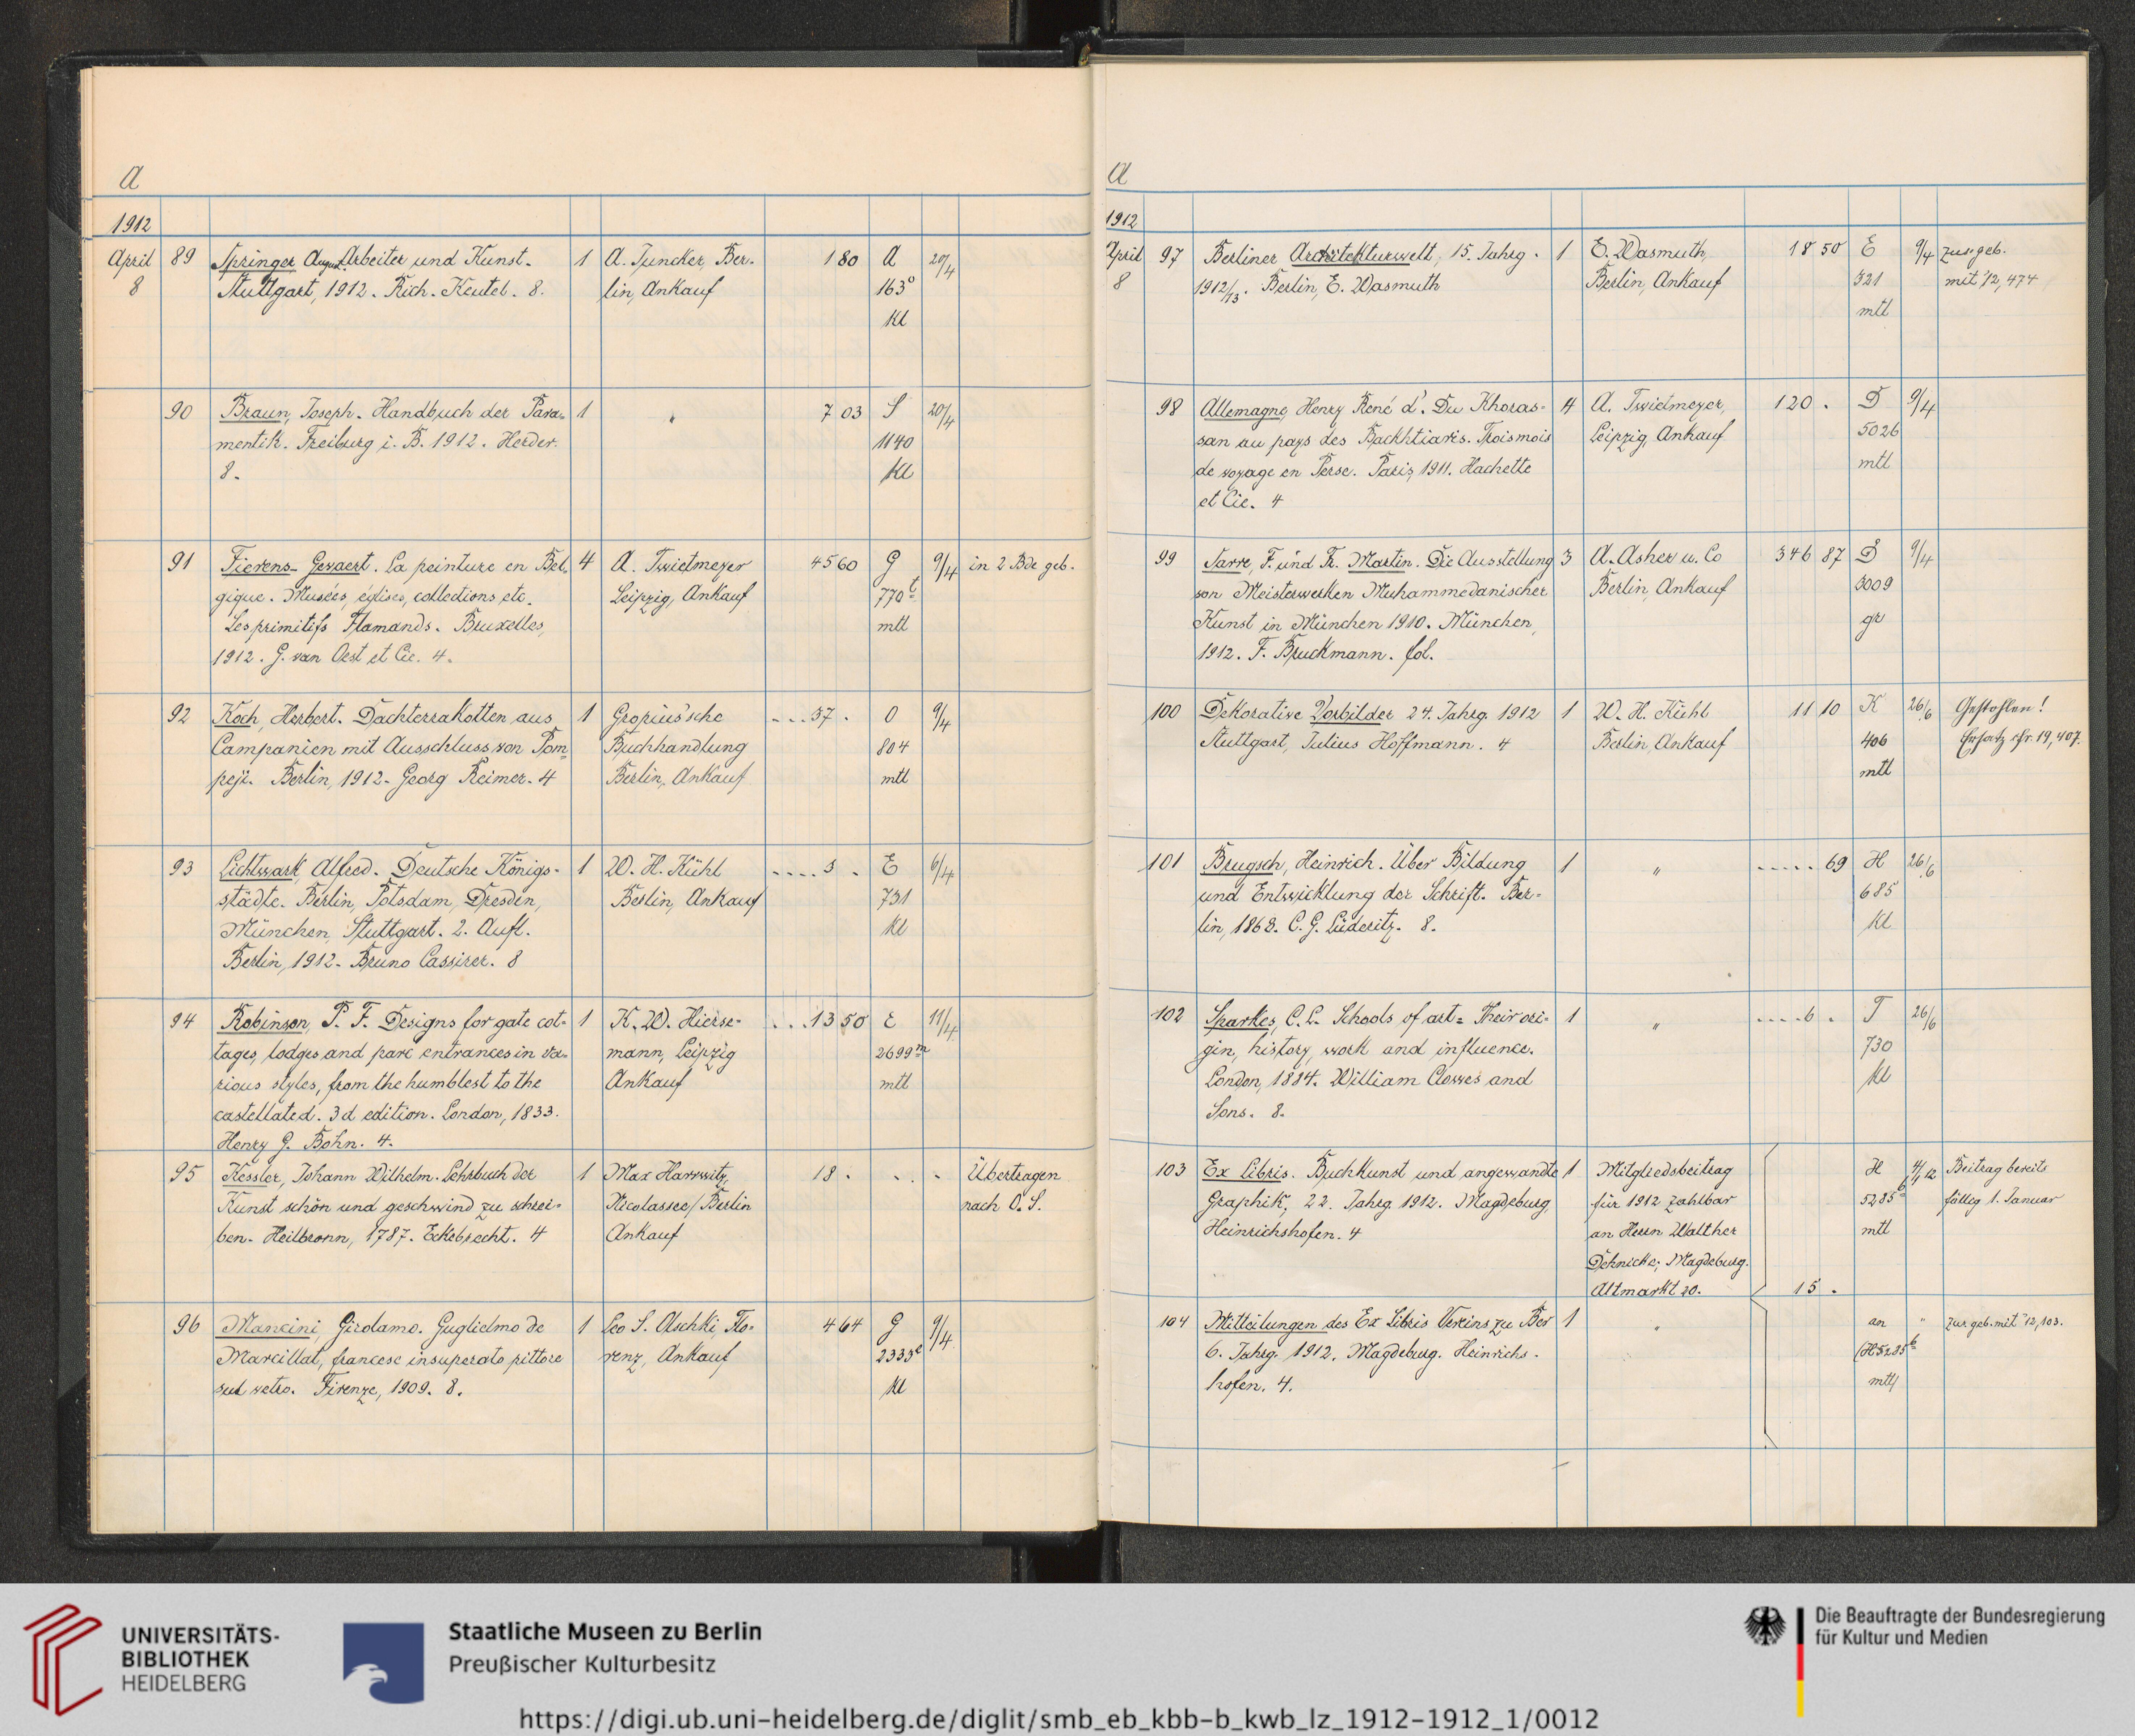 A
1912
April 89 Springer August. Arbeiter und Kunst. 1 A. Juncker, Ber- 1 80 A 20/4
8 Stuttgart, 1912. Rich. Keutel. 8. lin, Ankauf 163°
kl
90 Braun, Joseph. Handbuch der Para- 1 " 7 03 S 20/4
mentik. Freiburg i. B. 1912. Herder. 1140
8. kl
91 Fierens-Gevaert. La peinture en Bel- 4 A. Twietmeyer 45 60 G 9/4 in 2 Bde geb.
gique. Musées, églises, collections etc. Leipzig, Ankauf 770t
Les primitifs Flamands. Bruxelles, mtl
1912. G. van Oest et Cie. 4.
92 Koch, Herbert. Dachterrakotten aus 1 Gropius'sche ...37. O 9/4
Campanien mit Ausschluss von Pom- Buchhandlung 804
peji. Berlin, 1912. Georg Reimer. 4 Berlin, Ankauf mtl
93 Lichtwark, Alfred. Deutsche Königs- 1 W. H. Kühl ....3. E 6/4
städte. Berlin, Potsdam, Dresden, Berlin, Ankauf 731
München, Stuttgart. 2. Aufl. kl
Berlin, 1912. Bruno Cassirer. 8
94 Robinson, P. F. Designs for gate cot- 1 K. W. Hierse- ...13 50 E 11/4
tages, lodges, and parc entrances in va- mann, Leipzig 2699m
rious styles, from the humblest to the Ankauf mtl
castellated. 3d edition. London, 1833.
Henry G. Bohn. 4.
95 Kessler, Johann Wilhelm. Lehrbuch der 1 Max Harrwitz, 18. . . . Übertragen
Kunst schön und geschwind zu schrei- Nicolassee/Berlin nach O. S.
ben. Heilbronn, 1787. Eckebrecht. 4 Ankauf
96 Mancini, Girolamo. Guglielmo de 1 Leo S. Olschki, Flo- 4 64 G 9/4
Marcillat, francese insuperato pittore renz, Ankauf 2333e
sul vetro. Firenze, 1909. 8. kl
A
1912
April 97 Berliner Architekturwelt, 15. Jahrg. 1 E. Wasmuth, 18 50 E 9/4 zus. geb.
8 1912/13. Berlin, E. Wasmuth Berlin, Ankauf 321 mit 12,474
mtl
98 Allemagne, Henry René d'. Du Khoras- 4 A. Twietmeyer, 120. D 9/4
san au pays des Backhtiaris. Trois mois Leipzig, Ankauf 5026
de voyage en Perse. Paris, 1911. Hachette mtl
et Cie. 4
99 Sarre, F. und F. R. Martin. Die Ausstellung 3 A. Asher u. Co 346 87 D 9/4
von Meisterwerken Muhammedanischer Berlin, Ankauf 3009
Kunst in München 1910. München, gr
1912. F. Bruckmann. fol.
100 Dekorative Vorbilder 24. Jahrg. 1912 1 W. H. Kühl 11 10 K 26/6 Gestohlen!
Stuttgart, Julius Hoffmann. 4 Berlin, Ankauf 406 Ersatz cfr. 19,407.
mtl
101 Brugsch, Heinrich. Über Bildung 1 " .....69 H 26/6
und Entwicklung der Schrift. Ber- 685
lin, 1868. C. G. Lüderitz. 8. kl
102 Sparkes, C. L. Schools of art. Their ori- 1 " ....6. T 26/6
gin, history, work and influence. 730
London, 1884. William Clowes and kl
Sons. 8.
103 Ex Libris. Buchkunst und angewandte 1 Mitgliedsbeitrag H 4/12 Beitrag bereits
Graphik, 22. Jahrg. 1912. Magdeburg, für 1912 zahlbar 5285b fällig 1. Januar
Heinrichshofen. 4 an Herrn Walther mtl
Dehnicke, Magdeburg.
Altmarkt 20. 15.
104 Mitteilungen des Ex Libris Vereins zu Ber 1 " an " zus. geb. mit 12,103.
6. Jahrg. 1912. Magdeburg. Heinrichs- (H5285b
hofen. 4. mtl)
UNIVERSITÄTS-
BIBLIOTHEK
HEIDELBERG
Staatliche Museen zu Berlin
Preußischer Kulturbesitz
Die Beauftragte der Bundesregierung
für Kultur und Medien
https://digi.ub.uni-heidelberg.de/diglit/smb_eb_kbb-b_kwb_lz_1912-1912_1/0012